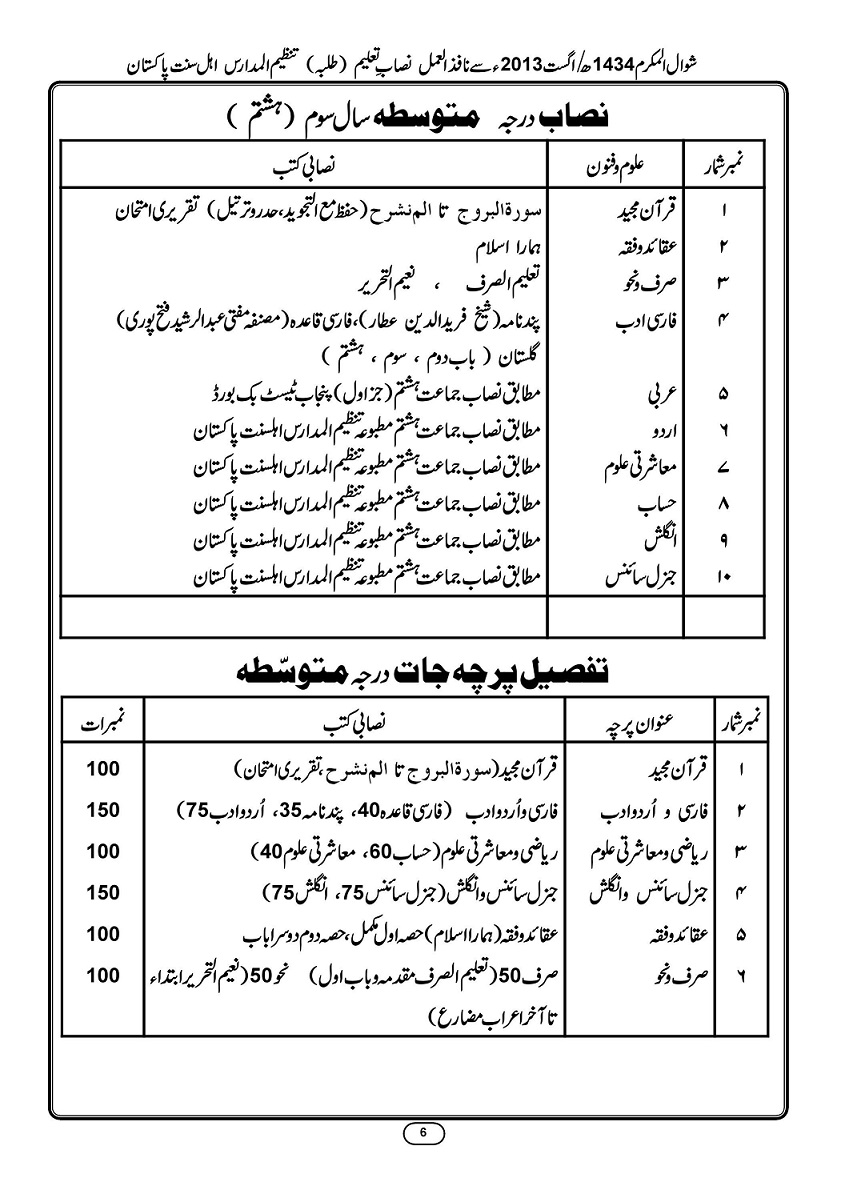 شوال المکرم 1434ھ/اگست2013ء سے نافذ العمل نصابِ تعلیم (طلبہ) تنظیم المدارس اہل سنت پاکستان
نصاب درجہ متوسطہ سال سوم (ہشتم)
نمبر شمار علوم و فنون نصابی کتب
۱ قرآن مجید سورۃ البروج تا الم نشرح (حفظ مع التجوید، حدر و ترتیل) تقریری امتحان
۲ عقائد و فقہ ہمارا اسلام
۳ صرف و نحو تعلیم الصرف ، نعیم التحریر
۴ فارسی ادب پندنامہ (شیخ فریدالدین عطار)، فارسی قاعدہ (مصنفہ مفتی عبدالرشید فتح پوری)
گلستان ( باب دوم ، سوم ، ہشتم )
۵ عربی مطابق نصاب جماعت ہشتم (جز اول) پنجاب ٹیسٹ بک بورڈ
۶ اردو مطابق نصاب جماعت ہشتم مطبوعہ تنظیم المدارس اہلسنت پاکستان
۷ معاشرتی علوم مطابق نصاب جماعت ہشتم مطبوعہ تنظیم المدارس اہلسنت پاکستان
۸ حساب مطابق نصاب جماعت ہشتم مطبوعہ تنظیم المدارس اہلسنت پاکستان
۹ انگلش مطابق نصاب جماعت ہشتم مطبوعہ تنظیم المدارس اہلسنت پاکستان
۱۰ جنرل سائنس مطابق نصاب جماعت ہشتم مطبوعہ تنظیم المدارس اہلسنت پاکستان
تفصیل پرچہ جات درجہ متوسّطہ
نمبر شمار عنوان پرچہ نصابی کتب نمبرات
۱ قرآن مجید قرآن مجید (سورۃ البروج تا الم نشرح، تقریری امتحان) 100
۲ فارسی و اُردو ادب فارسی و اُردو ادب (فارسی قاعدہ 40، پندنامہ 35، اُردو ادب 75) 150
۳ ریاضی و معاشرتی علوم ریاضی و معاشرتی علوم (حساب 60، معاشرتی علوم 40) 100
۴ جنرل سائنس وانگلش جنرل سائنس وانگلش (جنرل سائنس 75، انگلش 75) 150
۵ عقائد و فقہ عقائد و فقہ (ہمارا اسلام) حصہ اول مکمل، حصہ دوم دوسرا باب 100
۶ صرف و نحو صرف 50 (تعلیم الصرف مقدمہ و باب اول) نحو 50 (نعیم التحریر ابتداء 100
تا آخر اعراب مضارع)
6